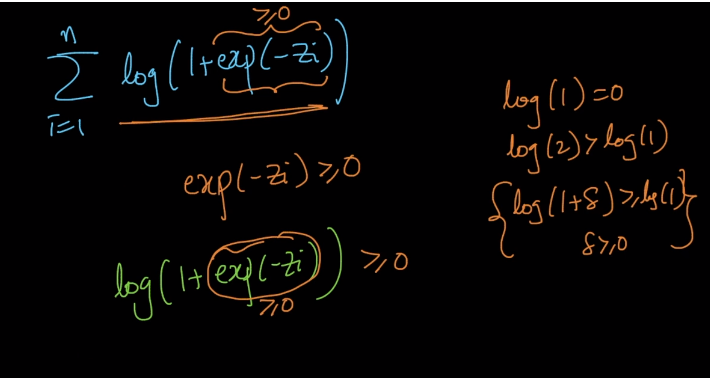 ≥0
n
∑ log(1+exp(-zi))
i=1
exp(-zi) ≥0
log(1+exp(-zi)) ≥0
≥0
log(1)=0
log(2)>log(1)
{log(1+δ)≥log(1)
δ≥0}